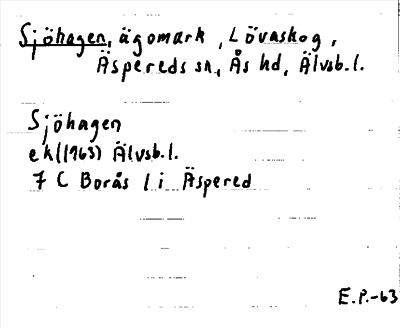 Sjöhagen, ägomark, Lövaskog,
Äspereds sn, Ås hd, Älvsb.l.
Sjöhagen
ek (1963) Älvsb.l.
7 C Borås l i Äspered
E.P.-63